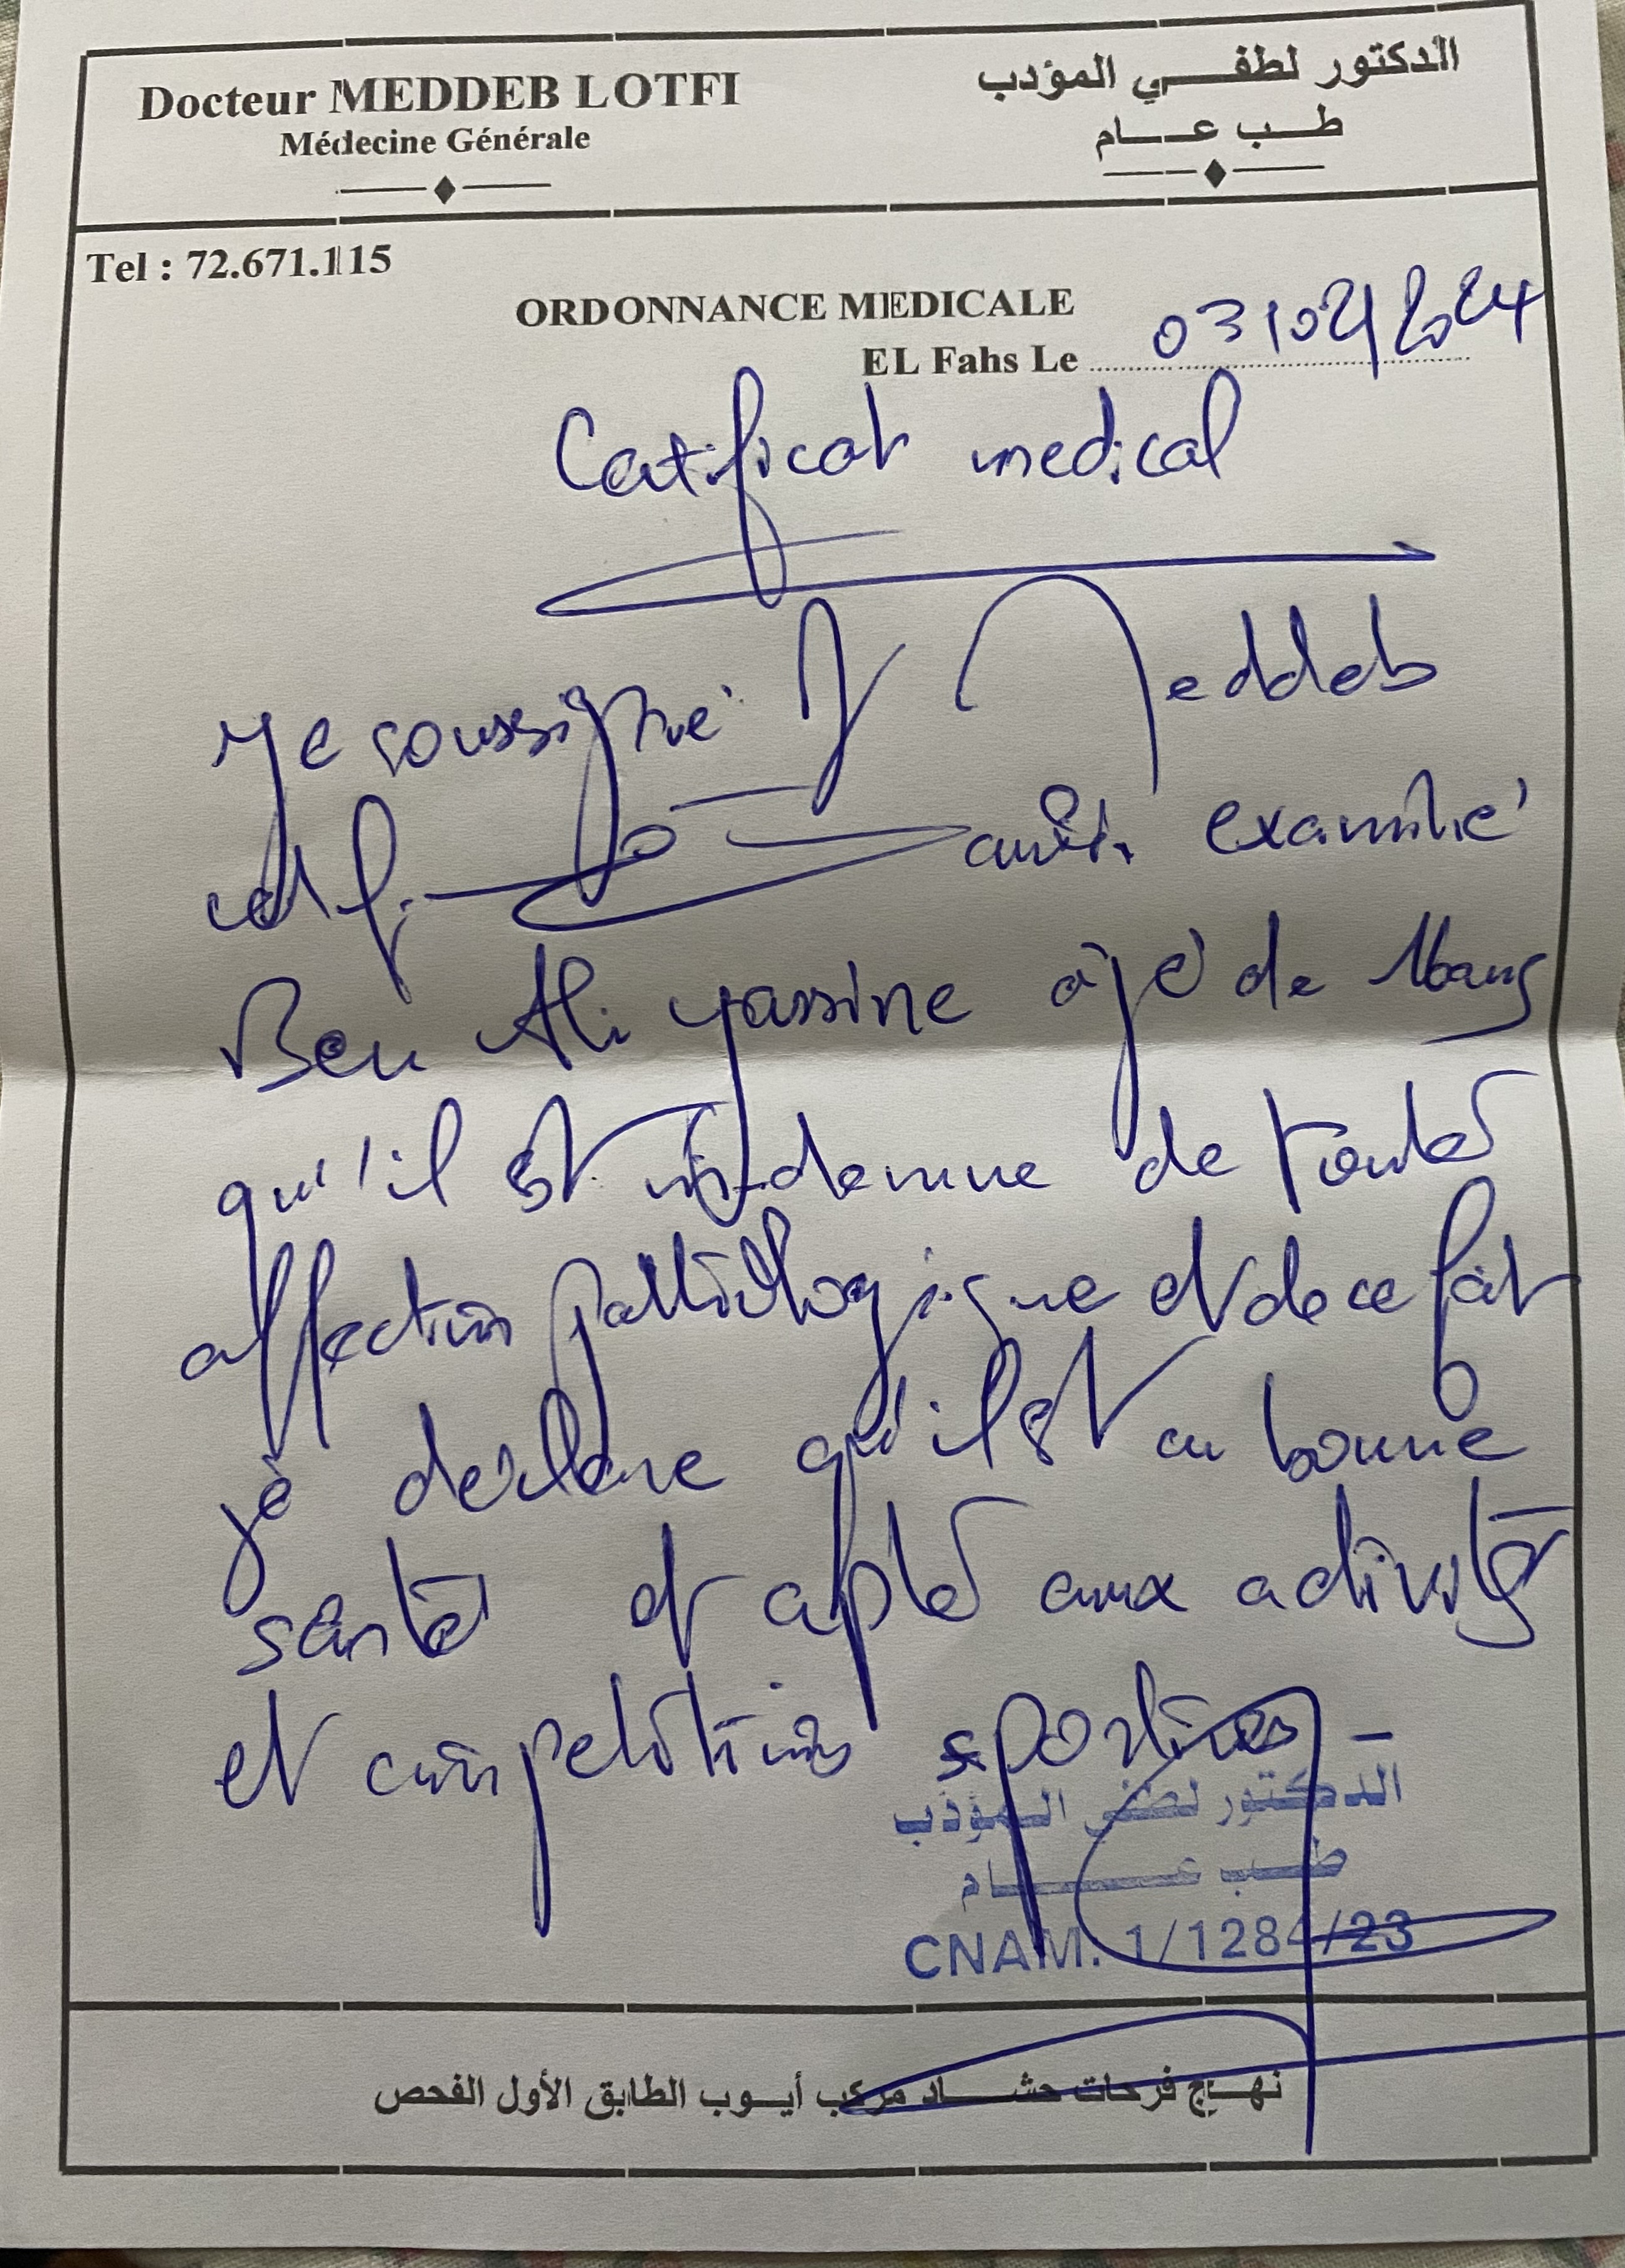 Docteur MEDDEB LOTFI
Médecine Générale
الدكتور لطفي المؤدب
طب عام
Tel : 72.671.115
ORDONNANCE MEDICALE
EL Fahs Le 03/02/2024
Certificat medical
Je soussigné Dr Meddeb
Lotfi avoir examiné
Ben Ali yassine âgé de 16 ans
qu'il est indemne de toute
affection pathologique et de ce fait
je déclare qu'il est en bonne
santé et apte aux activités
et compétitions sportives -
الدكتور لطفي المؤدب
طب عام
CNAM. 1/1284/23
نهج فرحات حشاد مركب أيوب الطابق الأول الفحص